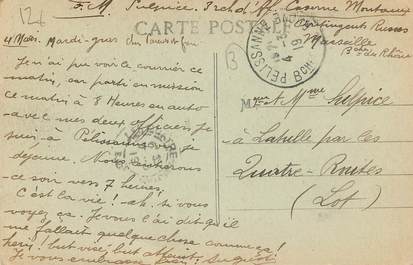 126
F. M. Sulpice. Caserne Montaurey
Contingents Russes
Marseille
Bches du Rhône
CARTE POSTALE
4 Mars. Mardi-gras
Je n'ai pu voir le courrier ce
matin, car parti en mission
ce matin à 8 Heures en auto
avec mes deux officiers. Je
suis à Pélissanne où je
déjeune. Nous rentrerons
ce soir vers 7 heures.
C'est la vie! ah. si vous
voyez ça. Je vous l'ai dit qu'il
me fallait quelque chose comme ça!
hein! but visé, but atteint.
Je vous embrasse bien.
PELISSANNE
BCH.
3
Mr et Mme Sulpice
à Labille par les
Quatre-Routes
(Lot)